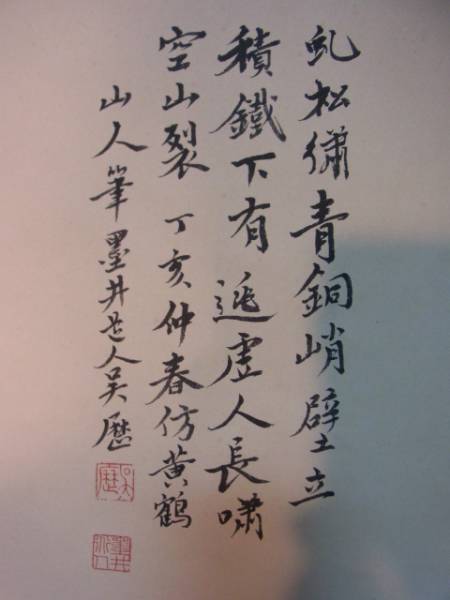 虬松繡青銅峭壁立
積鐵下有逃虛人長嘯
空山裂 丁亥仲春仿黃鶴
山人筆墨井道人吳歷